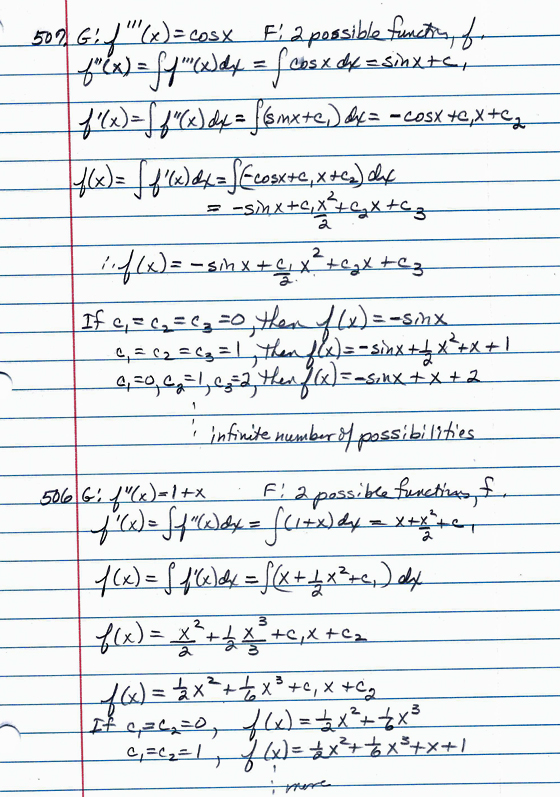 507. G: f'''(x) = cosx F: 2 possible functions, f.
f''(x) = ∫f'''(x)dx = ∫cosx dx = sinx + c₁
f'(x) = ∫f''(x)dx = ∫(sinx+c₁)dx = -cosx + c₁x + c₂
f(x) = ∫f'(x)dx = ∫(-cosx+c₁x+c₂)dx
= -sinx + c₁x²/2 + c₂x + c₃
∴ f(x) = -sinx + c₁/2 x² + c₂x + c₃
If c₁ = c₂ = c₃ = 0, then f(x) = -sinx
c₁ = c₂ = c₃ = 1, then f(x) = -sinx + ½x² + x + 1
c₁=0, c₂=1, c₃=2, then f(x) = -sinx + x + 2
⋮ infinite number of possibilities
506 G: f''(x) = 1+x F: 2 possible functions, f.
f'(x) = ∫f''(x)dx = ∫(1+x)dx = x + x²/2 + c₁
f(x) = ∫f'(x)dx = ∫(x + ½x² + c₁)dx
f(x) = x²/2 + ½ x³/3 + c₁x + c₂
f(x) = ½x² + ⅙x³ + c₁x + c₂
If c₁=c₂=0, f(x) = ½x² + ⅙x³
c₁=c₂=1, f(x) = ½x² + ⅙x³ + x + 1
⋮ more